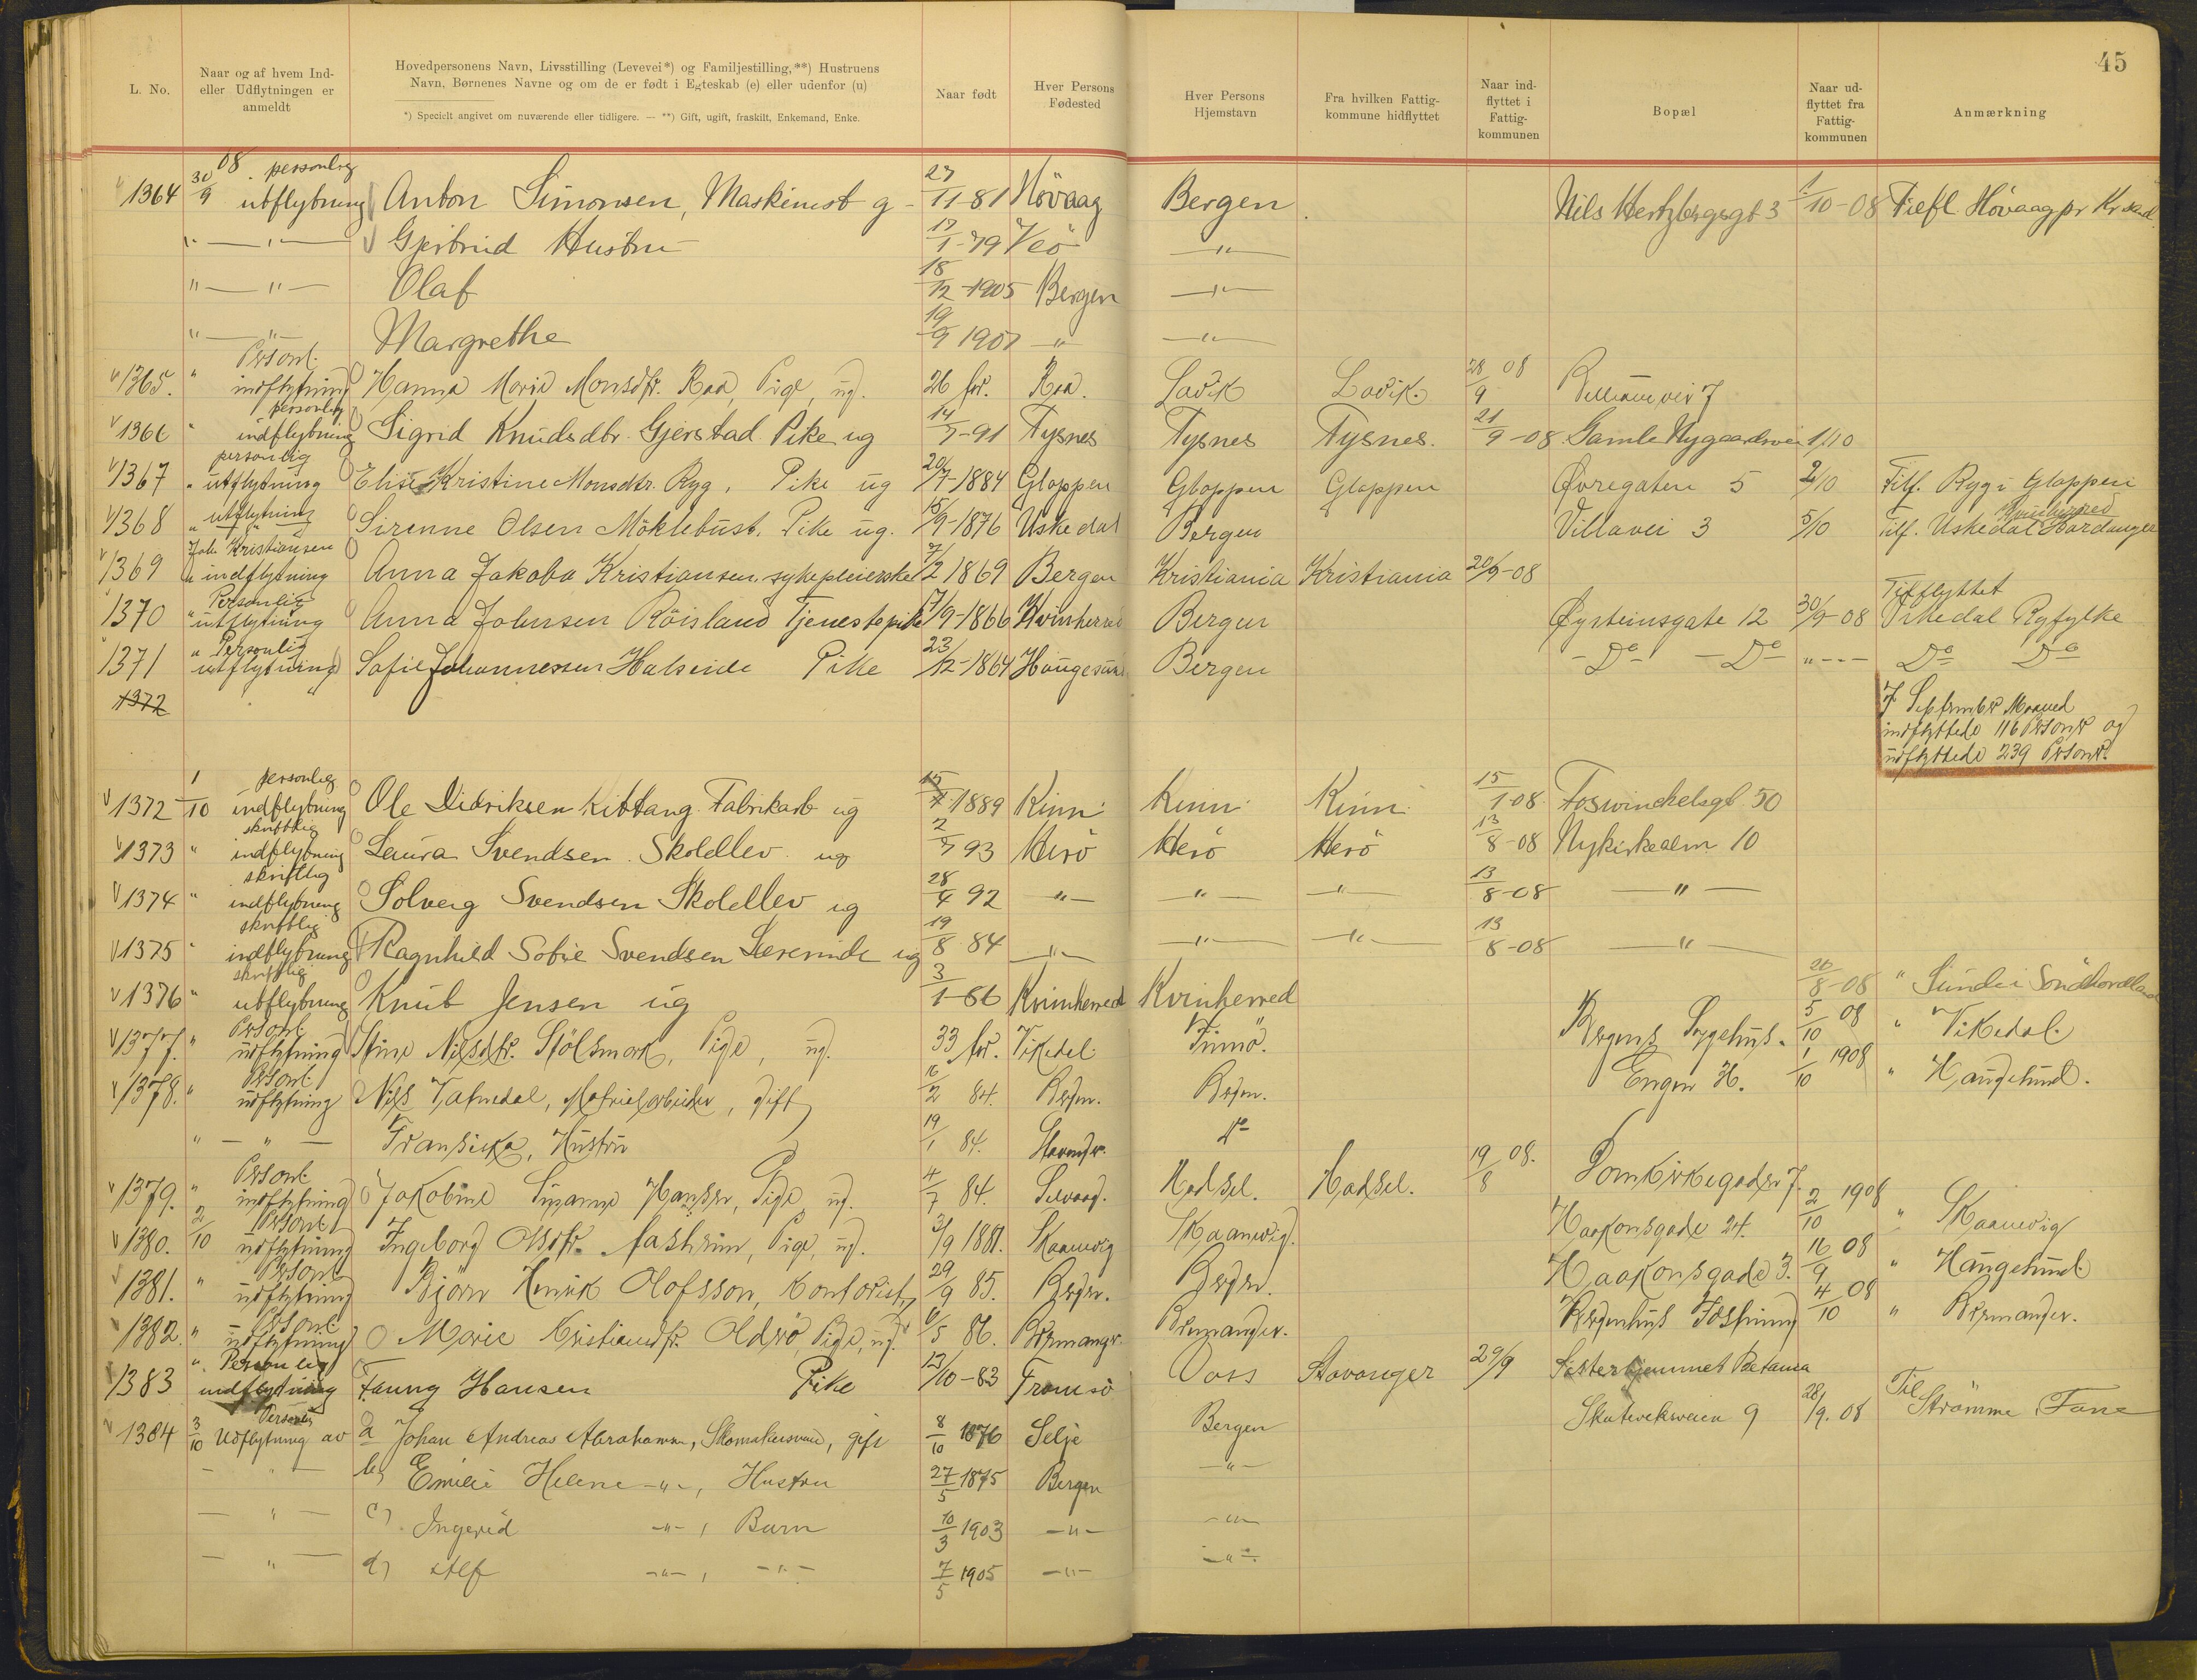 45
L. No.
Naar og af hvem Ind- eller Udflytningen er anmeldt
Hovedpersonens Navn, Livsstilling (Levevei*) og Familjestilling,**) Hustruens Navn, Børnenes Navne og om de er født i Egteskab (e) eller udenfor (u)
*) Specielt angivet om nuværende eller tidligere. — **) Gift, ugift, fraskilt, Enkemand, Enke.
Naar født
Hver Persons Fødested
Hver Persons Hjemstavn
Fra hvilken Fattig- kommune hidflyttet
Naar ind- flyttet i Fattig- kommunen
Bopæl
Naar ud- flyttet fra Fattig- kommunen
Anmærkning
1364 30/9 08. personlig utflytning Anton Simonsen, Maskinist g - 27/11-81 Høvaag Bergen Nils Hertzbergsgt 3 1/10-08 Høvaag pr Kr sand
"—"— Gjertrud Hustru 1-79 Veö —"—
"—"— Olaf 18/12-1905 Bergen —"—
"—"— Margrethe 19/9 1907 —"— —"—
1365. " Personl. indflytning Hanna Marie Monsdtr. Raa, Pige, ug. 26 År. Raa. Lavik Lavik. 28/9 08
1366 " personlig indflytning Sigrid Knudsdtr. Gjerstad Pike ug 14/7-91 Tysnes Tysnes Tysnes. 21/9-08. Gamle Nygaardsvei 1/10
1367 " personlig utflytning Elise Kristine Monsdtr. Ryg, Pike ug 20/7-1884 Gloppen Gloppen Gloppen Øvregaten 5 2/10 Tilf. Ryg i Gloppen
1368 " utflytning Sirenne Olsen Möklebust. Pike ug. 15/9-1876 Uskedal Bergen Villavei 3 5/10 Tilf. Uskedal Hardanger
1369 Joh. Kristiansen " indflytning Anna Jakoba Kristiansen, sykepleierske 7/2 1869 Bergen Kristiania Kristiania 20/9-08
1370 " Personlig utflytning Anna Johnsen Röisland Tjenestepike /9-1866 Kvinherred Bergen Øysteinsgate 12 30/9-08 Tilflyttet Vikedal Ryfylke
1371 " Personlig utflytning Sofie Johannessen Halseide Pike 23/12-1864 Haugesund Bergen — Do — — Do — "--- Do Do
1372
I September Maaned
indflyttede 116 Personer og
udflyttede 239 Personer.
1372 1/10 personlig indflytning Ole Didriksen Kittang Fabrikarb ug 1889 Kinn Kinn Kinn 15/1 08. Foswinckelsgt 50
1373 " skriftlig indflytning Laura Svendsen Skolellev ug 2/7 93 Herö Herö Herö 13/8-08 Nykirkealm 10
1374 " skriftlig indflytning Solveig Svendsen Skolellev ug 28/4 92 —"— —"— —"— 13/8-08 —"—
1375 " skriftlig indflytning Ragnhild Sofie Svendsen Lærerinde ug 19/8 84 —"— —"— —"— 13/8-08 —"—
1376 " skriftlig utflytning Knut Jensen ug 3/1-86 Kvinherred Kvinherred 20/8-08 " Sunde i Söndhordland
1377. " Personl. udflytning Stine Nilsdtr. Stölsmark, Pige, ug. 33 År. Vikedal. Finnö. Bergens Sygehus. 5/10 08 " Vikedal.
1378. " Personl. udflytning Nils Vatnedal, gift 2 84. Bergen. Bergen. Engen H. 1/10 1908 " Haugesund.
"—"— Fransiska, Hustru 19/1 84. Stavanger. Do
1379. " Personl. indflytning Jakobine Susanne Hansen, Pige, ug. 4/7 84. Hadsel. Hadsel. 19/8 08. Domkirkegaden 7.
1380. 2/10 Personl. udflytning Ingeborg Olsdtr. Pige, ug. /9 1881. Skaanevig Skaanevig. Haakonsgade 24. 2/10 1908 " Skaanevig
1381. " Personl. udflytning Björn Henrik Olofsson, Kontorist, 29/9 85. Bergen. Bergen. Haakonsgade 3. 16/9 08 " Haugesund
1382. " Personl. udflytning Marie Kristiansdtr. Oldrö, Pige, ug. 6/5 86. Bremanger. Bremanger. Bergenhus Fæstning 4/10 08 " Bremanger.
1383 " Personlig indflytning Fanny Hansen Pike 13/10-83 Tromsö Voss Stavanger 29/9 Søsterhjemmet Betania
1384 3/10 Personlig Udflytning av a Johan Andreas Abrahamsen, Skomakersvend, gift 8/10 1876 Selje Bergen Skuteviksveien 9 28/9. 08 Til Strömme, Fane
— " — b) Emilie Helene -"-, Hustru 27/5 1875 Bergen —"—
— " — c) Ingerid -"-, Barn 10/3 1903 —"— —"—
— " — d) Alf -"-, -"- 7/5 1905 —"— —"—